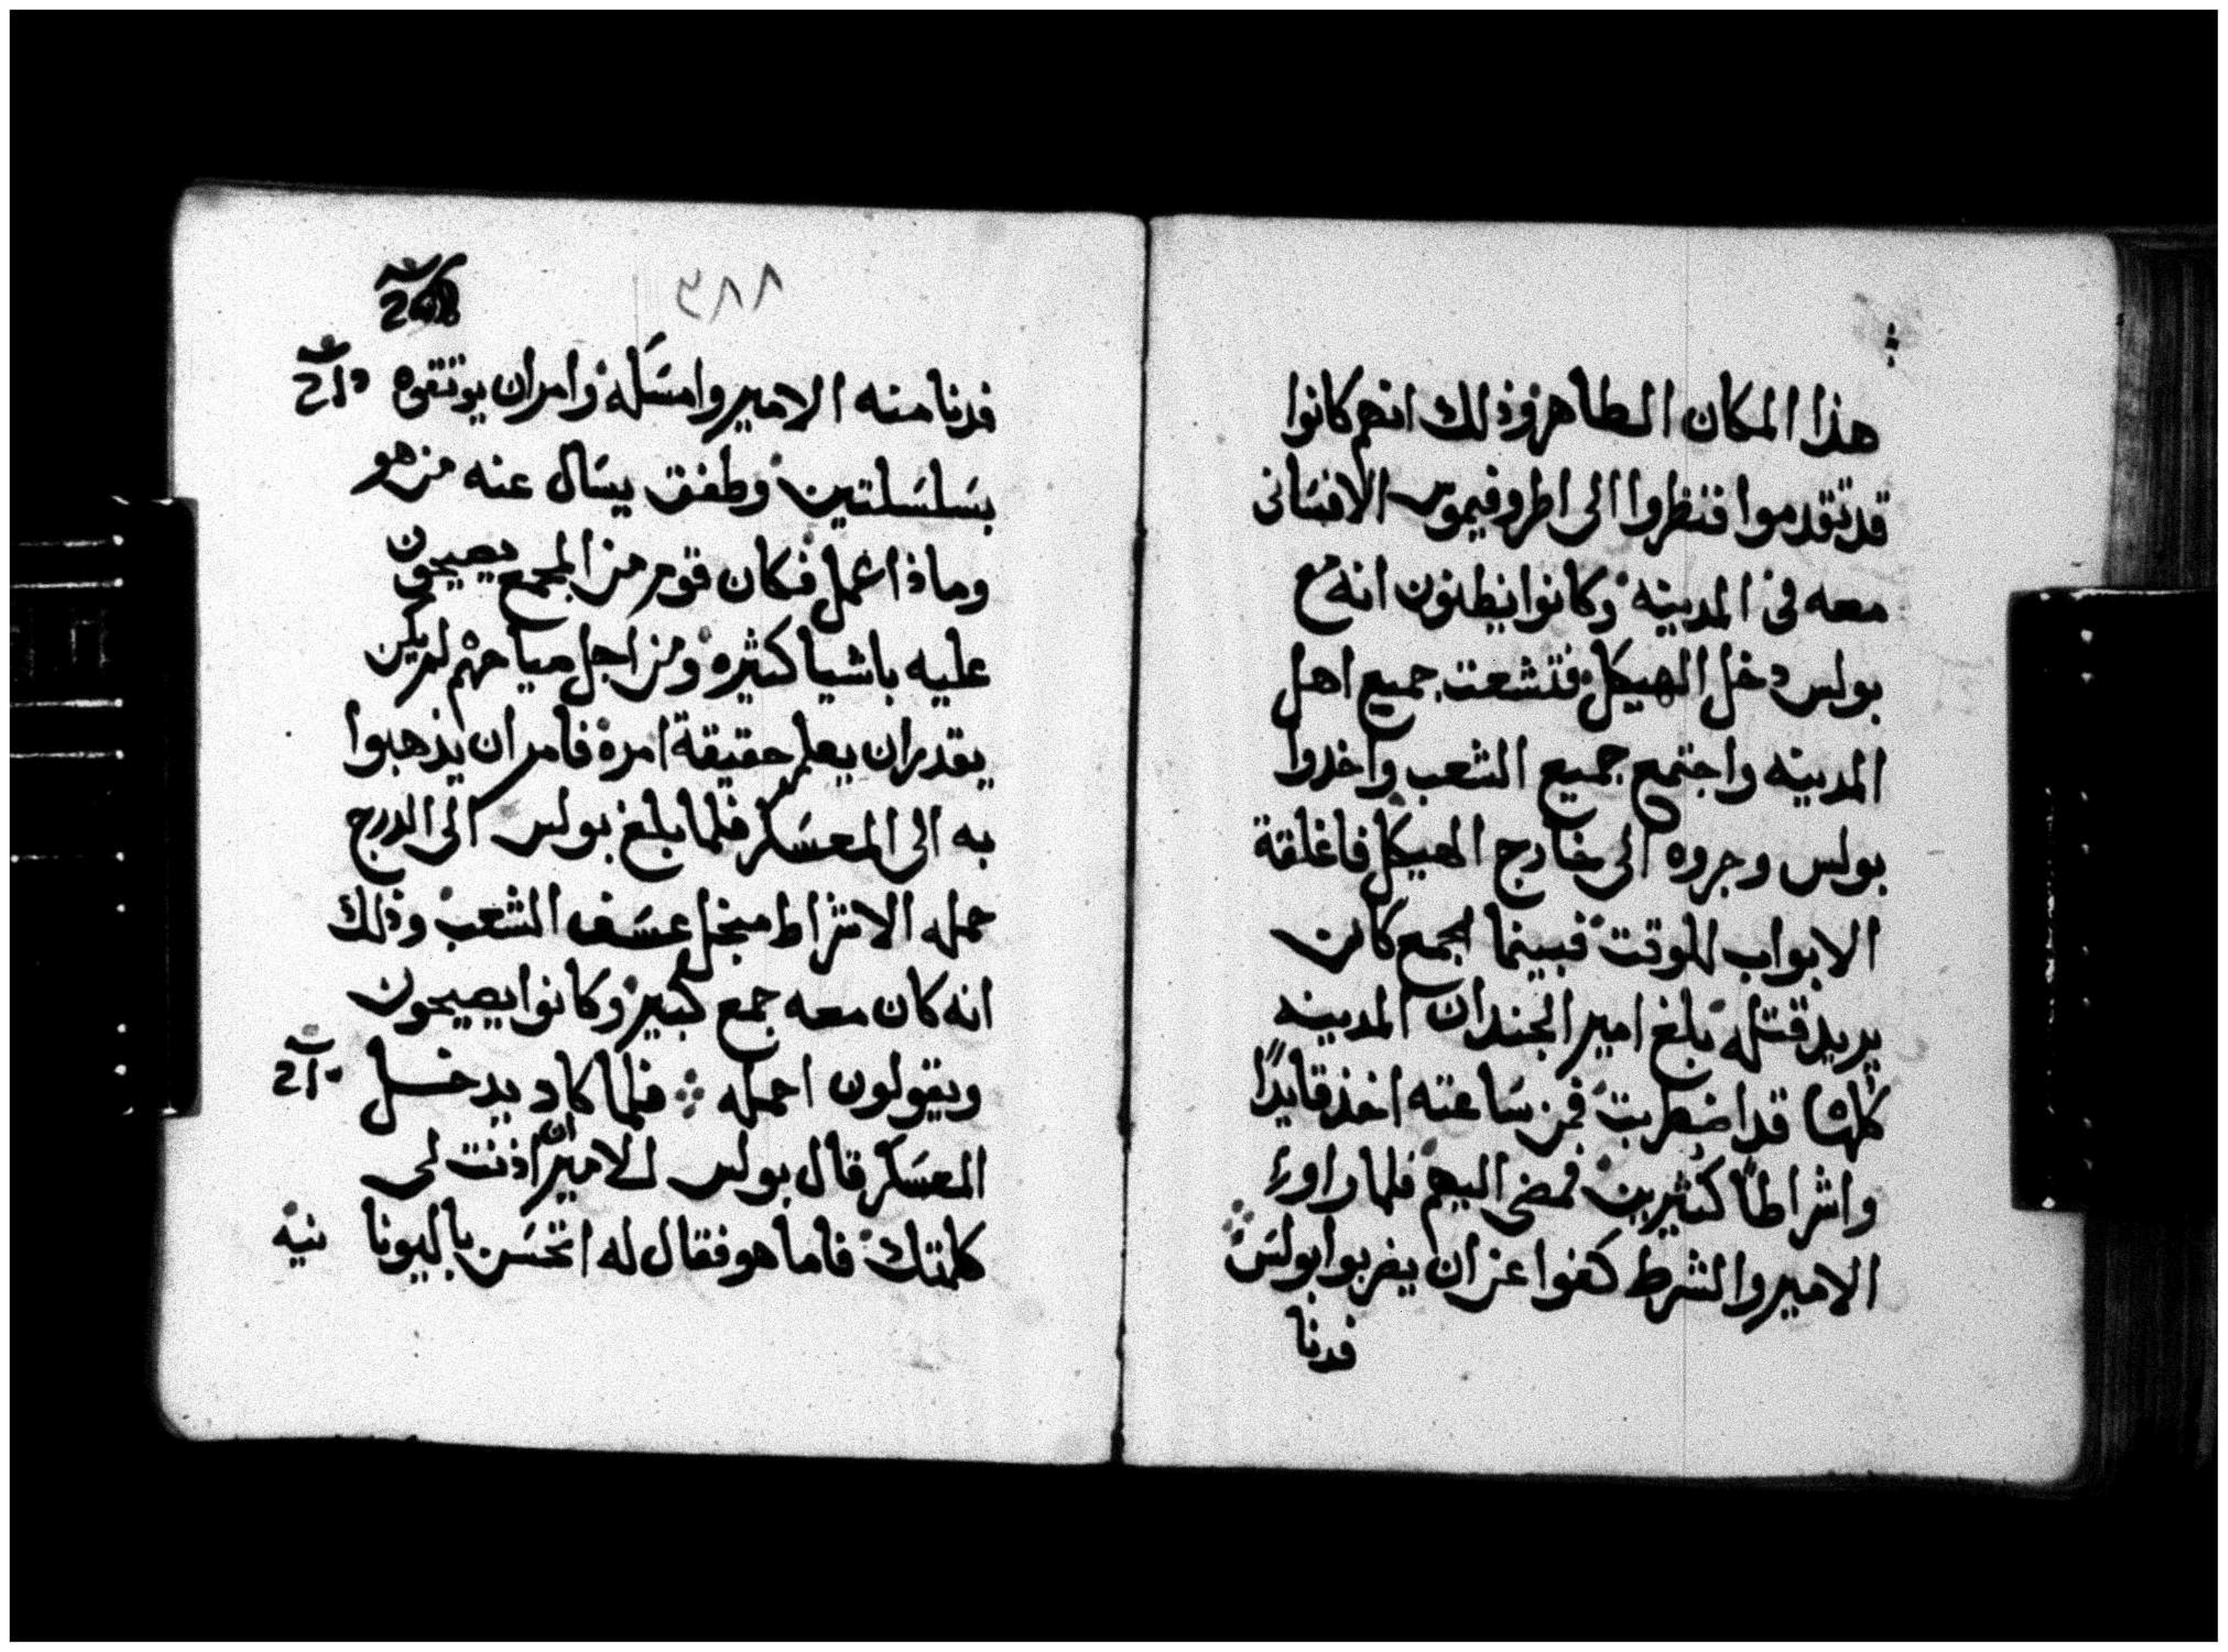 هذا المكان الطاهر وذلك انهم كانوا
قد تقدموا فنظروا الى اطروفيموس الافسانى
معه فى المدينه وكانوا يظنون انه مع
بولس دخل الهيكل فتشعت جميع اهل
المدينه واجتمع جميع الشعب واخدوا
بولس وجروه الى خارج الهيكل فاغلقة
الابواب للوقت فبينما الجمع كان
يريد قتله بلغ امير الجند ان المدينه
كلها قد اضطربت فمن ساعته اخذ قايدًا
واشراطًا كثيرين فمضى اليهم فلما راوا
الامير والشرط كفوا عن ان يضربوا بولس
فدنا
٣٨٨
فدنا منه الامير وامسكه وامر ان يوتقوه
بسلسلتين وطفق يسال عنه من هو
وماذا عمل فكان قوم من الجمع يصيحون
عليه باشيا كثيره ومن اجل صياحهم لم يكن
يقدر ان يعلم حقيقة امره فامر ان يذهبوا
به الى المعسكر فلما بلغ بولس الى الدرج
حمله الاشراط من اجل عسف الشعب وذلك
انه كان معه جمع كبير وكانوا يصيحون
ويقولون احمله ܀ فلما كاد يدخل
المعسكر قال بولس للامير ان اذنت لى
كلمتك فاما هو فقال له اتحسن باليونا نيه